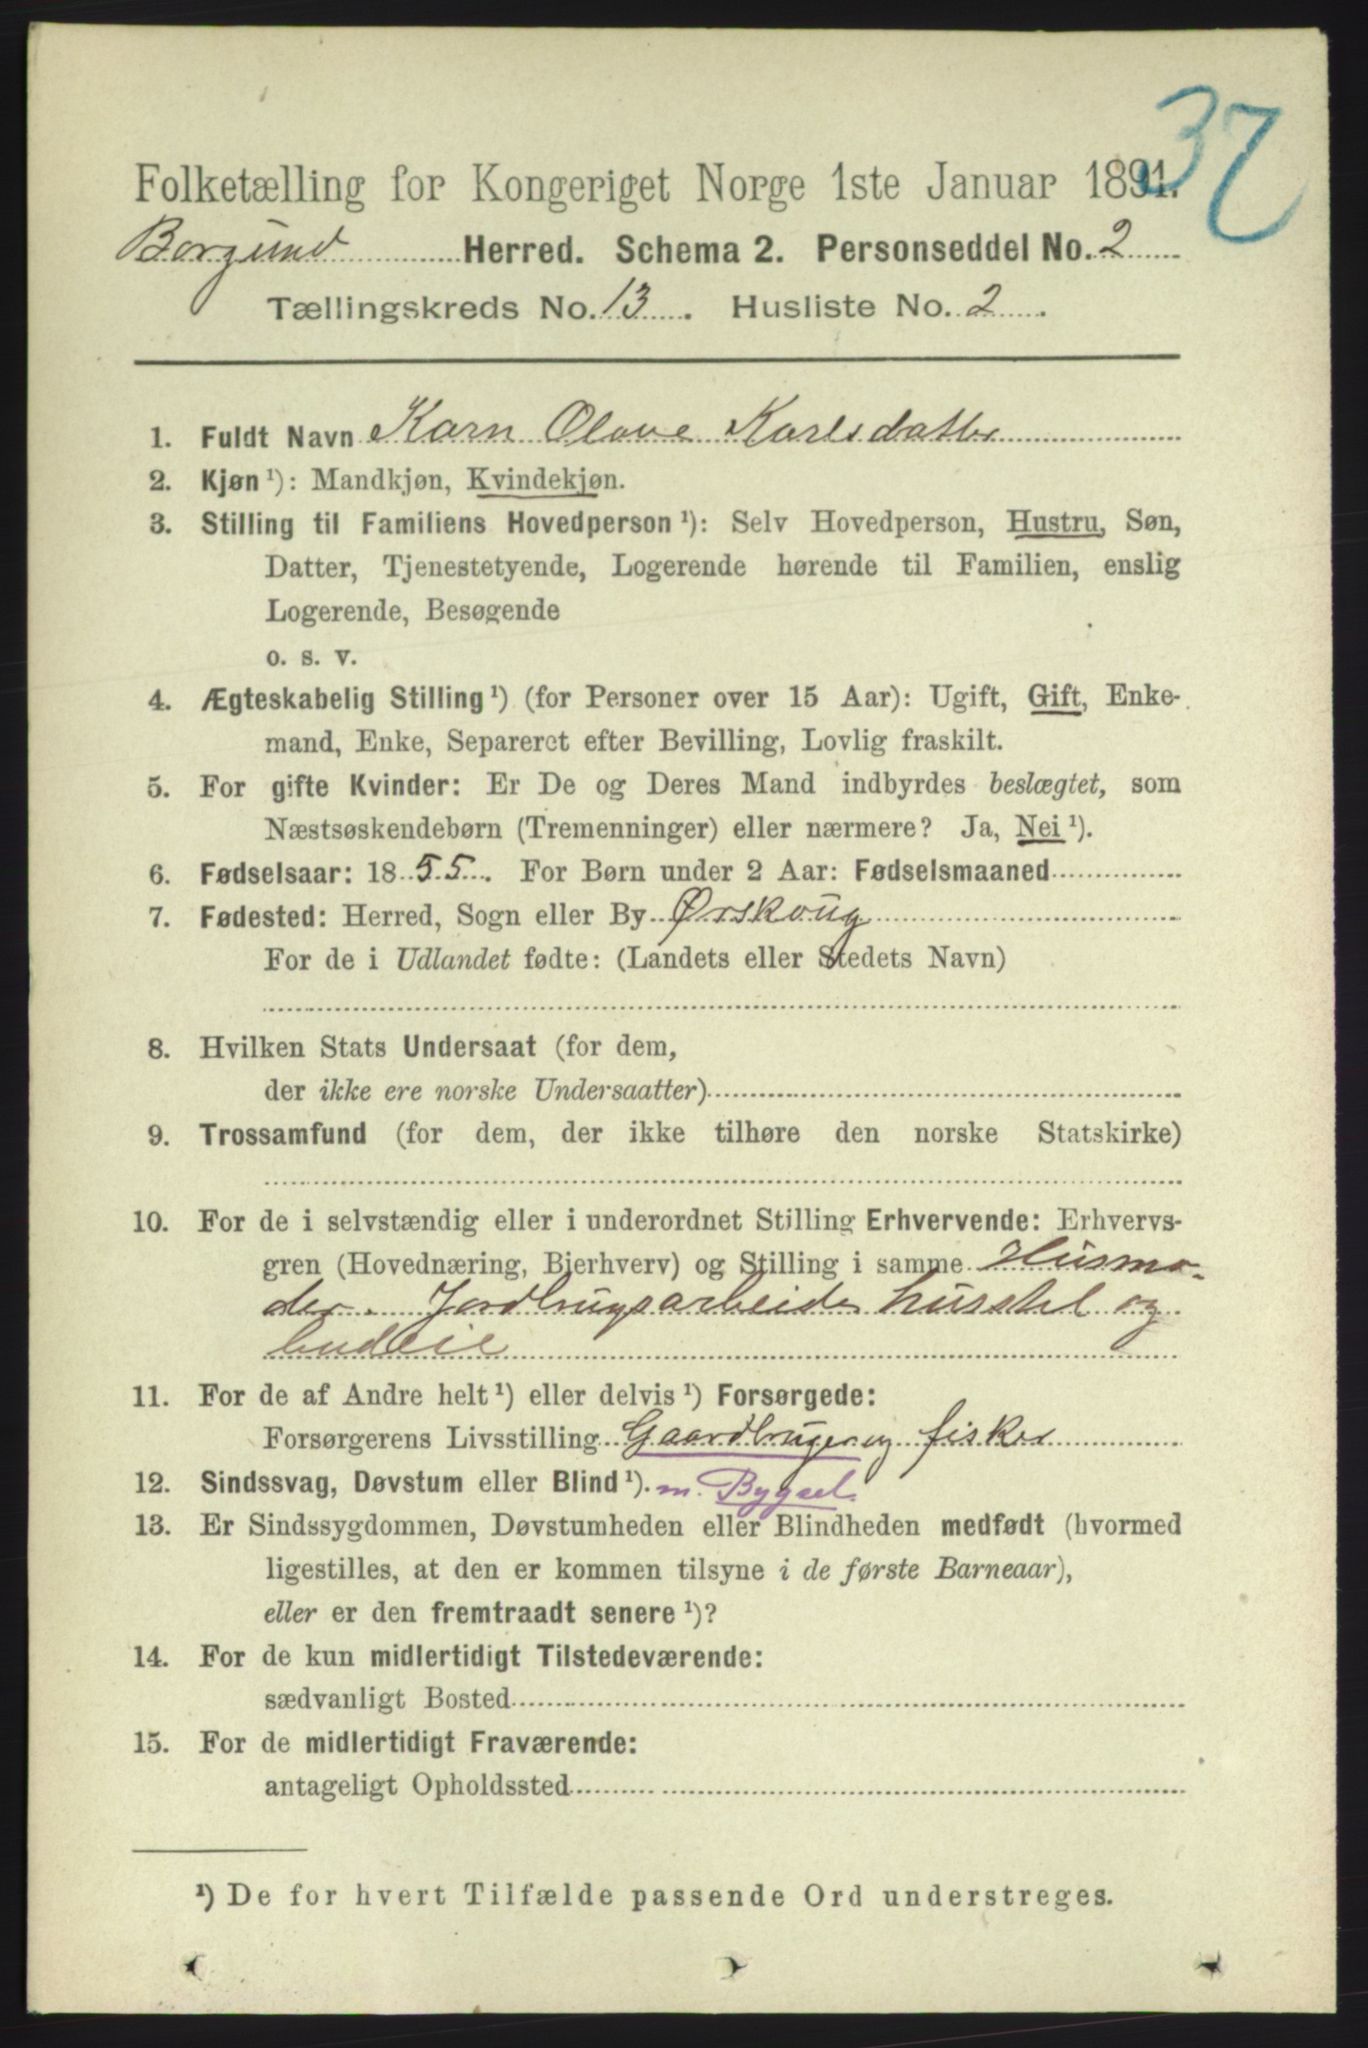 37
Folketælling for Kongeriget Norge 1ste Januar 1891.
Borgund Herred. Schema 2. Personseddel No. 2
Tællingskreds No. 13. Husliste No. 2.
1. Fuldt Navn Karn Olave Karlsdatter
2. Kjøn ¹): Mandkjøn, Kvindekjøn.
3. Stilling til Familiens Hovedperson ¹): Selv Hovedperson, Hustru, Søn,
Datter, Tjenestetyende, Logerende hørende til Familien, enslig
Logerende, Besøgende
o. s. v.
4. Ægteskabelig Stilling ¹) (for Personer over 15 Aar): Ugift, Gift, Enke-
mand, Enke, Separeret efter Bevilling, Lovlig fraskilt.
5. For gifte Kvinder: Er De og Deres Mand indbyrdes beslægtet, som
Næstsøskendebørn (Tremenninger) eller nærmere? Ja, Nei ¹).
6. Fødselsaar: 1855. For Børn under 2 Aar: Fødselsmaaned
7. Fødested: Herred, Sogn eller By Ørskoug
For de i Udlandet fødte: (Landets eller Stedets Navn)
8. Hvilken Stats Undersaat (for dem,
der ikke ere norske Undersaatter)
9. Trossamfund (for dem, der ikke tilhøre den norske Statskirke)
10. For de i selvstændig eller i underordnet Stilling Erhvervende: Erhvervs-
gren (Hovednæring, Bierhverv) og Stilling i samme Husmo-
der. Jordbrugsarbeide husstel og
budeie
11. For de af Andre helt ¹) eller delvis ¹) Forsørgede:
Forsørgerens Livsstilling Gaardbruger og fisker
12. Sindssvag, Døvstum eller Blind ¹). m. Bygsel.
13. Er Sindssygdommen, Døvstumheden eller Blindheden medfødt (hvormed
ligestilles, at den er kommen tilsyne i de første Barneaar),
eller er den fremtraadt senere ¹)?
14. For de kun midlertidigt Tilstedeværende:
sædvanligt Bosted
15. For de midlertidigt Fraværende:
antageligt Opholdssted
¹) De for hvert Tilfælde passende Ord understreges.